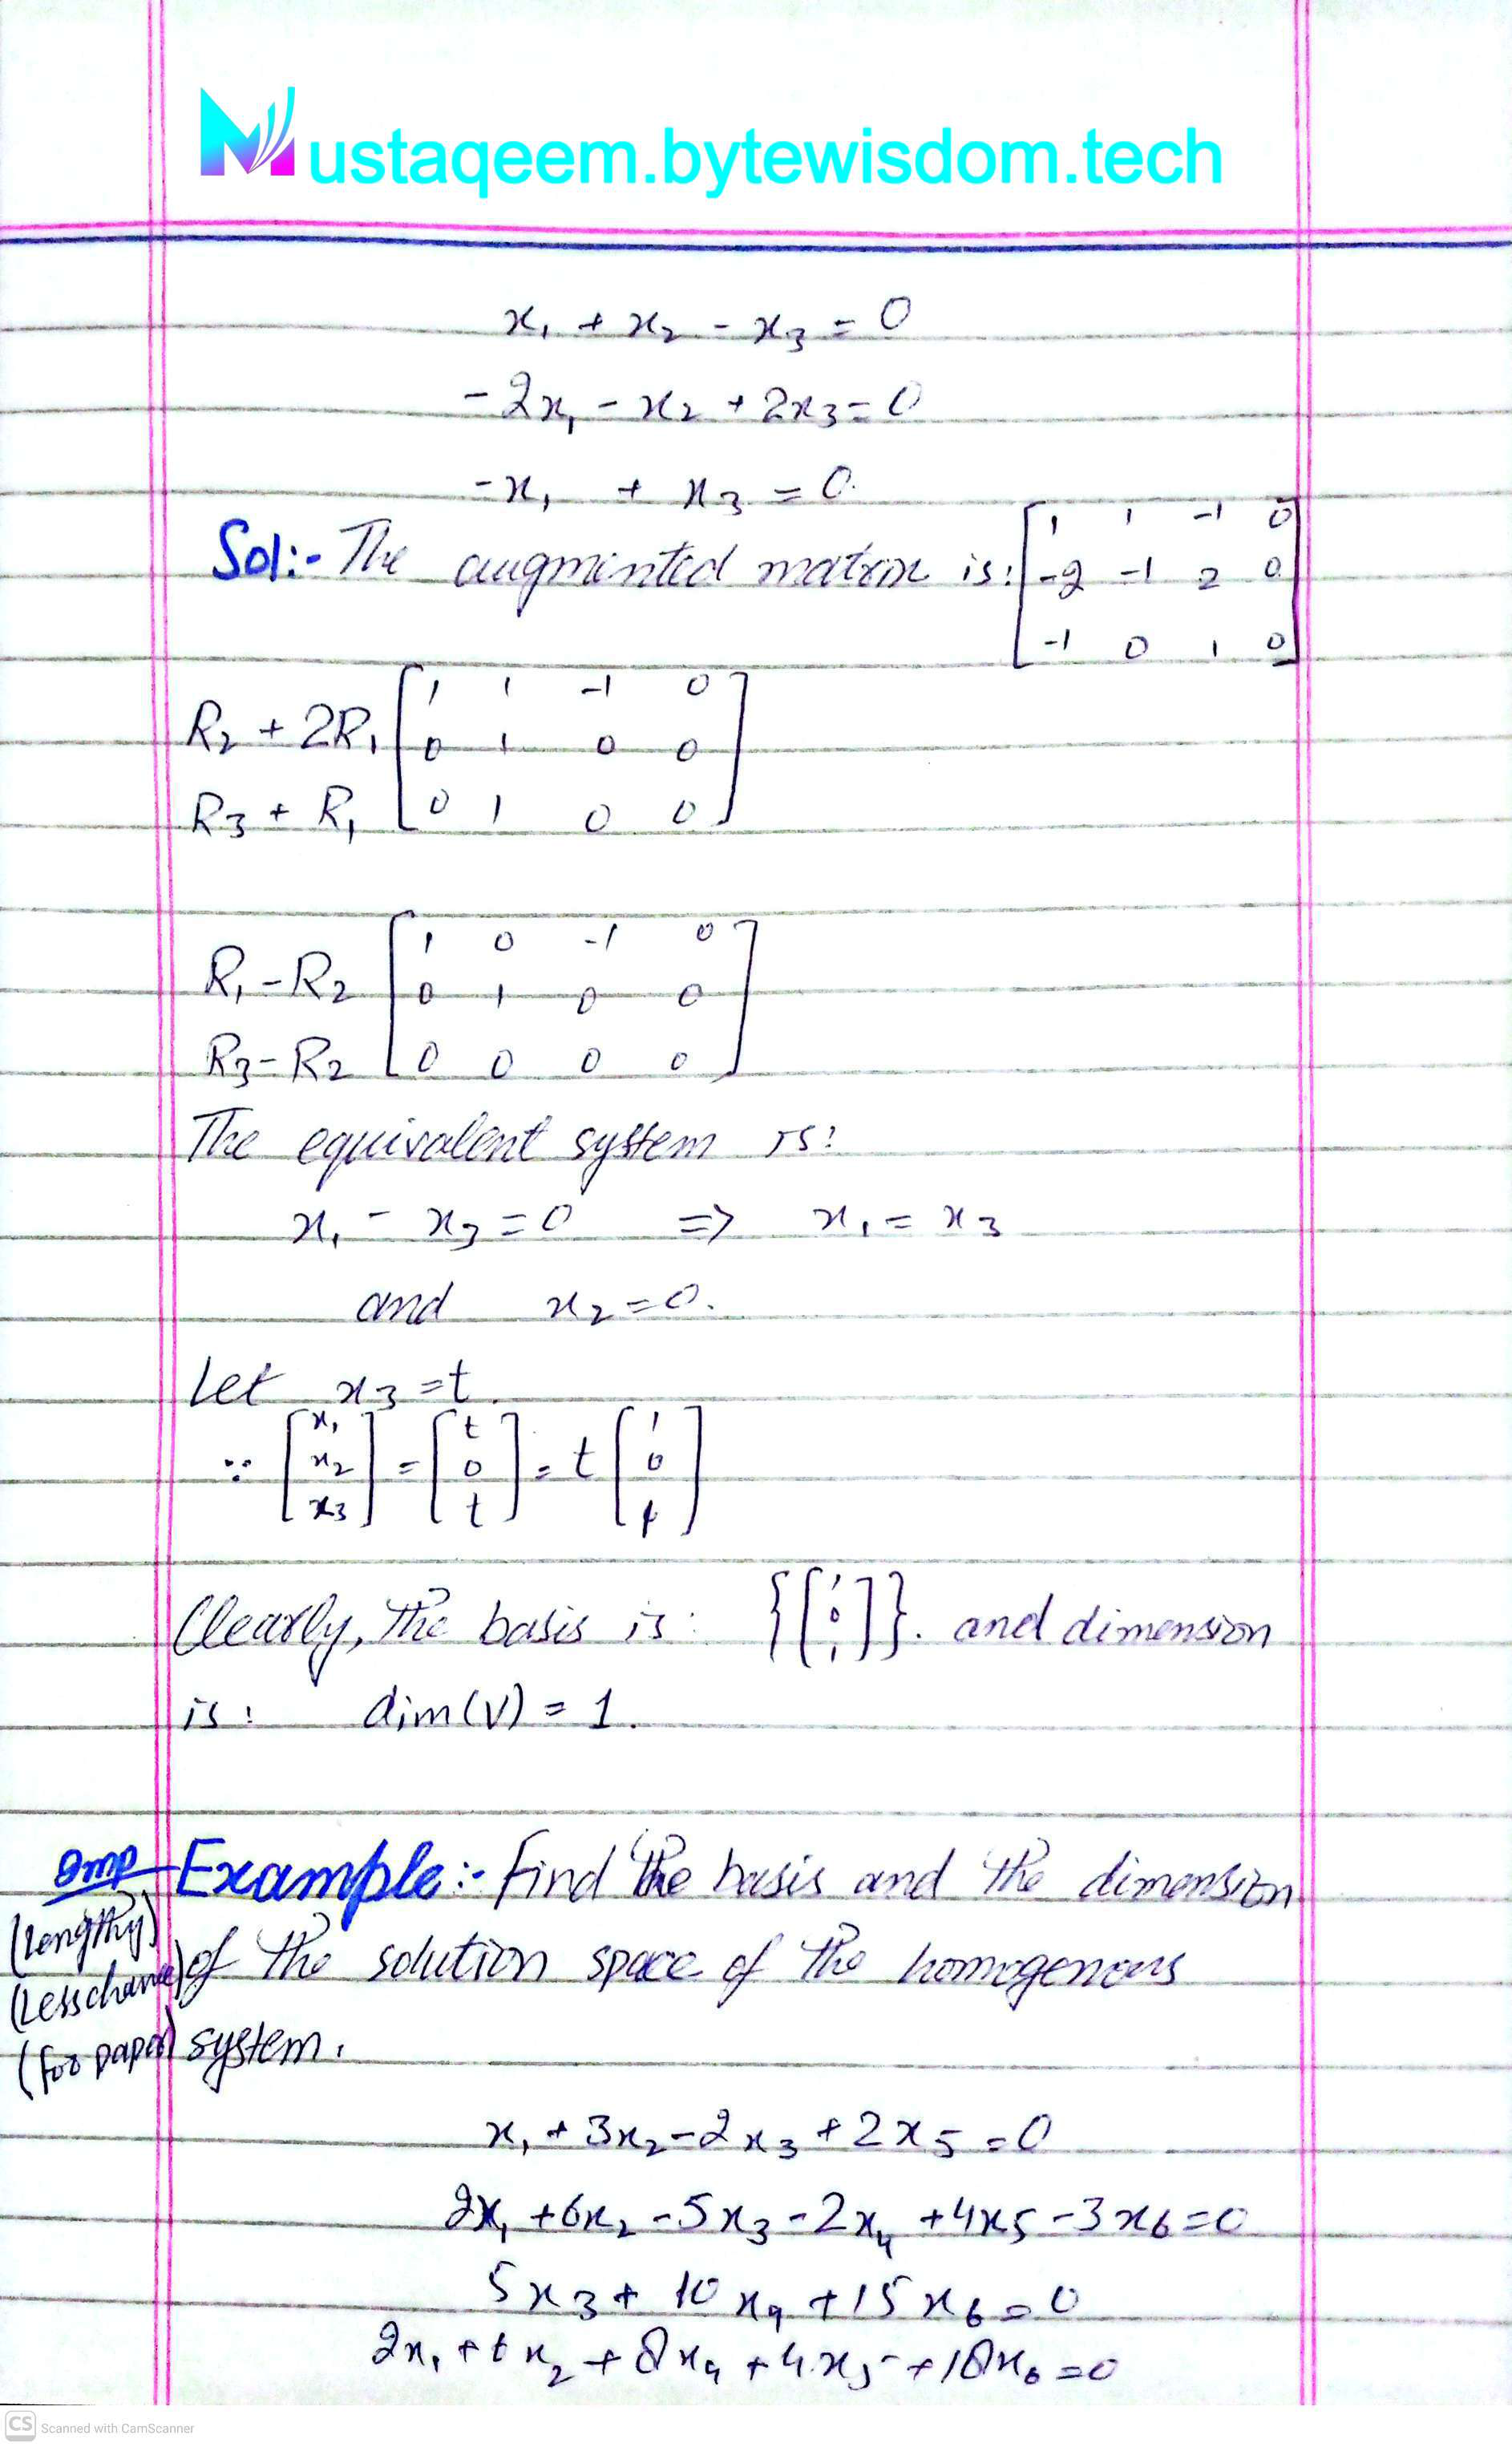 Mustaqeem.bytewisdom.tech
x₁ + x₂ - x₃ = 0
-2x₁ - x₂ + 2x₃ = 0
-x₁ + x₃ = 0.
Sol:- The augminted matrix is: [1 1 -1 0
-2 -1 2 0
-1 0 1 0]
R₂ + 2R₁ [1 1 -1 0
0 1 0 0
R₃ + R₁ 0 1 0 0]
R₁ - R₂ [1 0 -1 0
0 1 0 0
R₃ - R₂ 0 0 0 0]
The equivalent system is:
x₁ - x₃ = 0 => x₁ = x₃
and x₂ = 0.
Let x₃ = t.
∵ [x₁ x₂ x₃] = [t 0 t] = t [1 0 1]
Clearly, the basis is: {[1 0 1]}. and dimension
is: dim(V) = 1.
Imp Example:- find the basis and the dimension
(Lengthy)
(Less chance) of the solution space of the homogenous
(for paper) system.
x₁ + 3x₂ - 2x₃ + 2x₅ = 0
2x₁ + 6x₂ - 5x₃ - 2x₄ + 4x₅ - 3x₆ = 0
5x₃ + 10x₄ + 15x₆ = 0
2x₁ + 6x₂ + 8x₄ + 4x₅ + 18x₆ = 0
CS Scanned with CamScanner